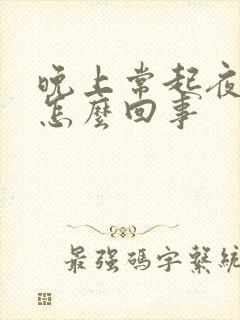 晚上常起夜
怎麼回事
最強碼字繫統